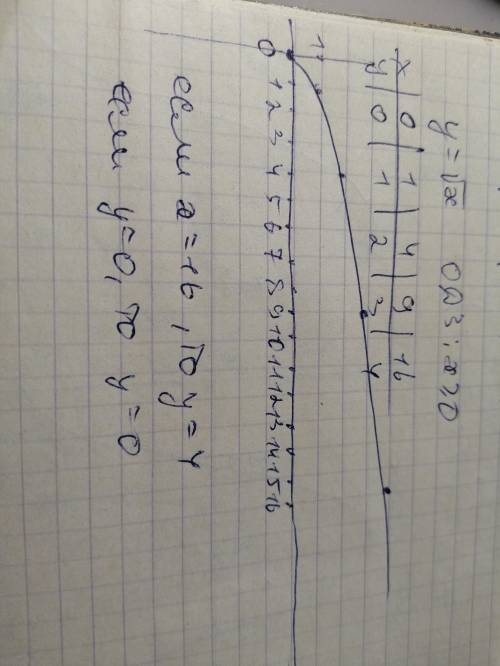 y = √x ОДЗ: x≥0
x | 0 | 1 | 4 | 9 | 16
y | 0 | 1 | 2 | 3 | 4
1
0 1 2 3 4 5 6 7 8 9 10 11 12 13 14 15 16
если x = 16, то y = 4
если y = 0, то y = 0